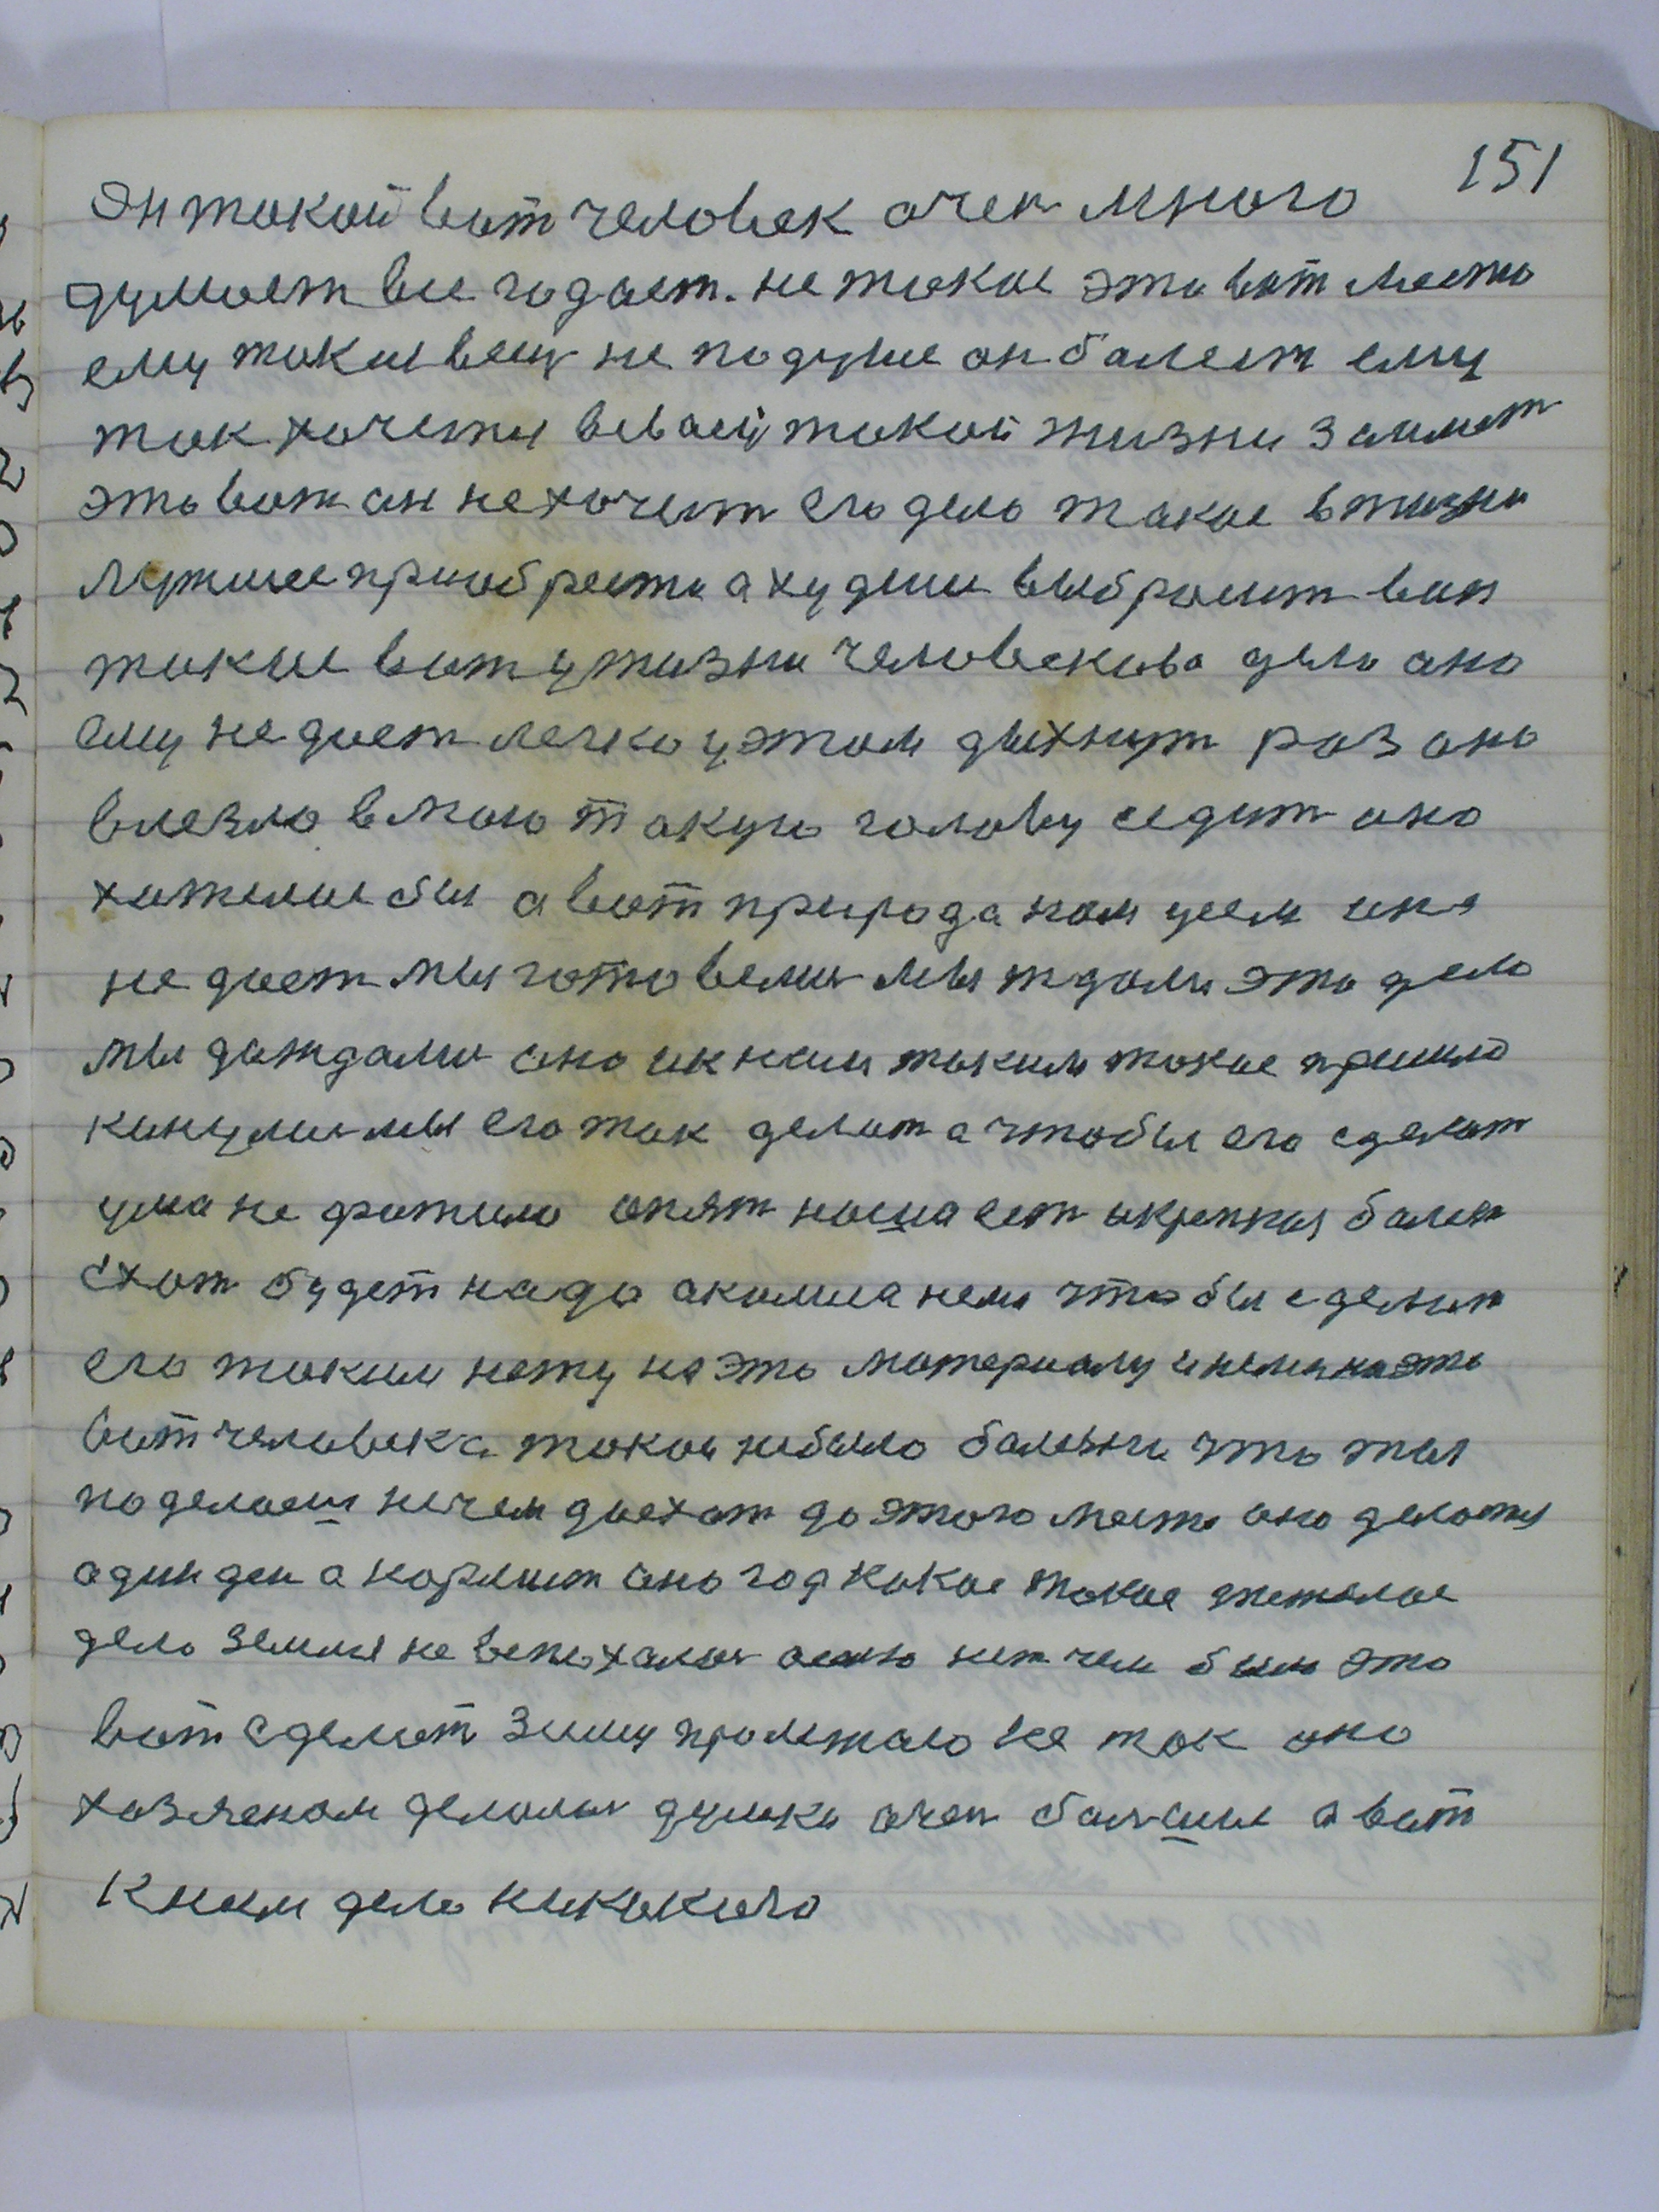 151
Эн такой вот человек очен много
думает все годает. не такое это вот место
ему такие вещ не подуше он болеет ему
так хочется всваей такой жизни займет
это вот он не хочет его дело такое в жизни
лутшее приобрести а худшие выбросит вон
такие вот у жизни человекова дело оно
ему не дает легко у этом дыхнут раз оно
влезло в мою такую голову седит оно
хателое бы а вот природа нам уем ина
не дает мы готовелис мы ждали это дело
мы даждалис оно ик ним таким такое пришло
кинулис мы его так делат а чтобы его сделат
ума не фатило опят наша ест укрепкая балез
схот будет надо акалила нем чтобы сделат
его таким нету на это материалу и нема на это
вот человека такой небыло балезни что ты
поделаеш нечем доехат до этого места оно делатся
адин ден а кормит оно год какое такое тежелое
дело земля не вспахалас осеню нет чем было это
вот сделат зиму пролежало не так оно
хазяеном делалас думки очен балшие а вот
к ним дело никакого